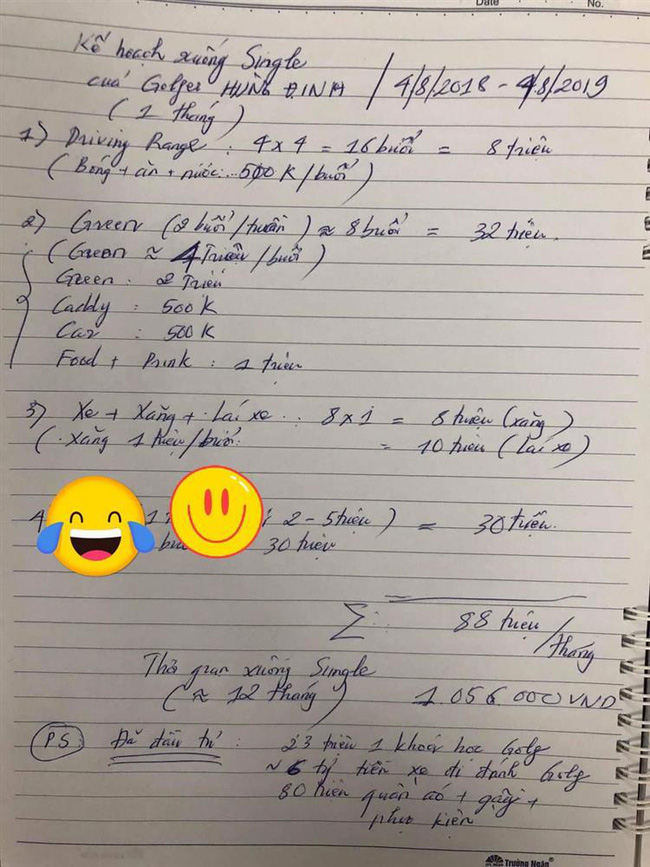 Date No.
Kế hoạch xuống Single
của Golfer HÙNG ĐINH / 4/8/2018 - 4/8/2019
( 1 tháng )
1) Driving Range : 4 x 4 = 16 buổi = 8 triệu
( Bóng + ăn + nước... 500 K / buổi )
2) Green (2 buổi / tuần ) ≈ 8 buổi = 32 triệu.
( Green ≈ 4 Triệu / buổi )
Green : 2 Triệu
Caddy : 500 K
Car : 500 K
Food + Drink : 1 triệu
3) Xe + Xăng + Lái xe : 8 x 1 = 8 triệu (xăng)
( Xăng 1 triệu / buổi = 10 triệu ( Lái xe )
4 1 2 - 5 triệu ) = 30 triệu.
30 triệu
Σ : 88 triệu / tháng
Thời gian xuống Single
( ≈ 12 tháng ) 1.056.000 VND
PS: Đã đầu tư : 23 triệu 1 khoá học Golf
~ 6 tỷ tiền xe đi đánh Golf
80 triệu quần áo + gậy +
phụ kiện
Trường Ngân